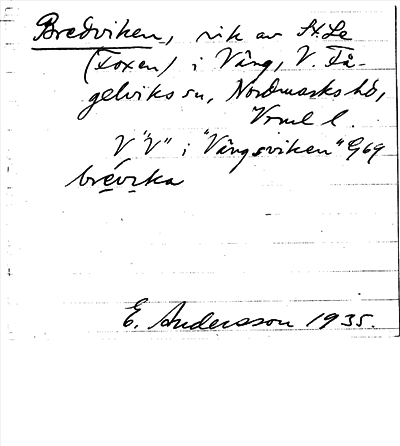 Bredviken, vik av St. Le
(Foxen) i Vång, V. Få-
gelviks sn, Nordmarks hd,
Vrml l.
V "V" i "Vångsviken" G69
brevika
E. Andersson 1935.